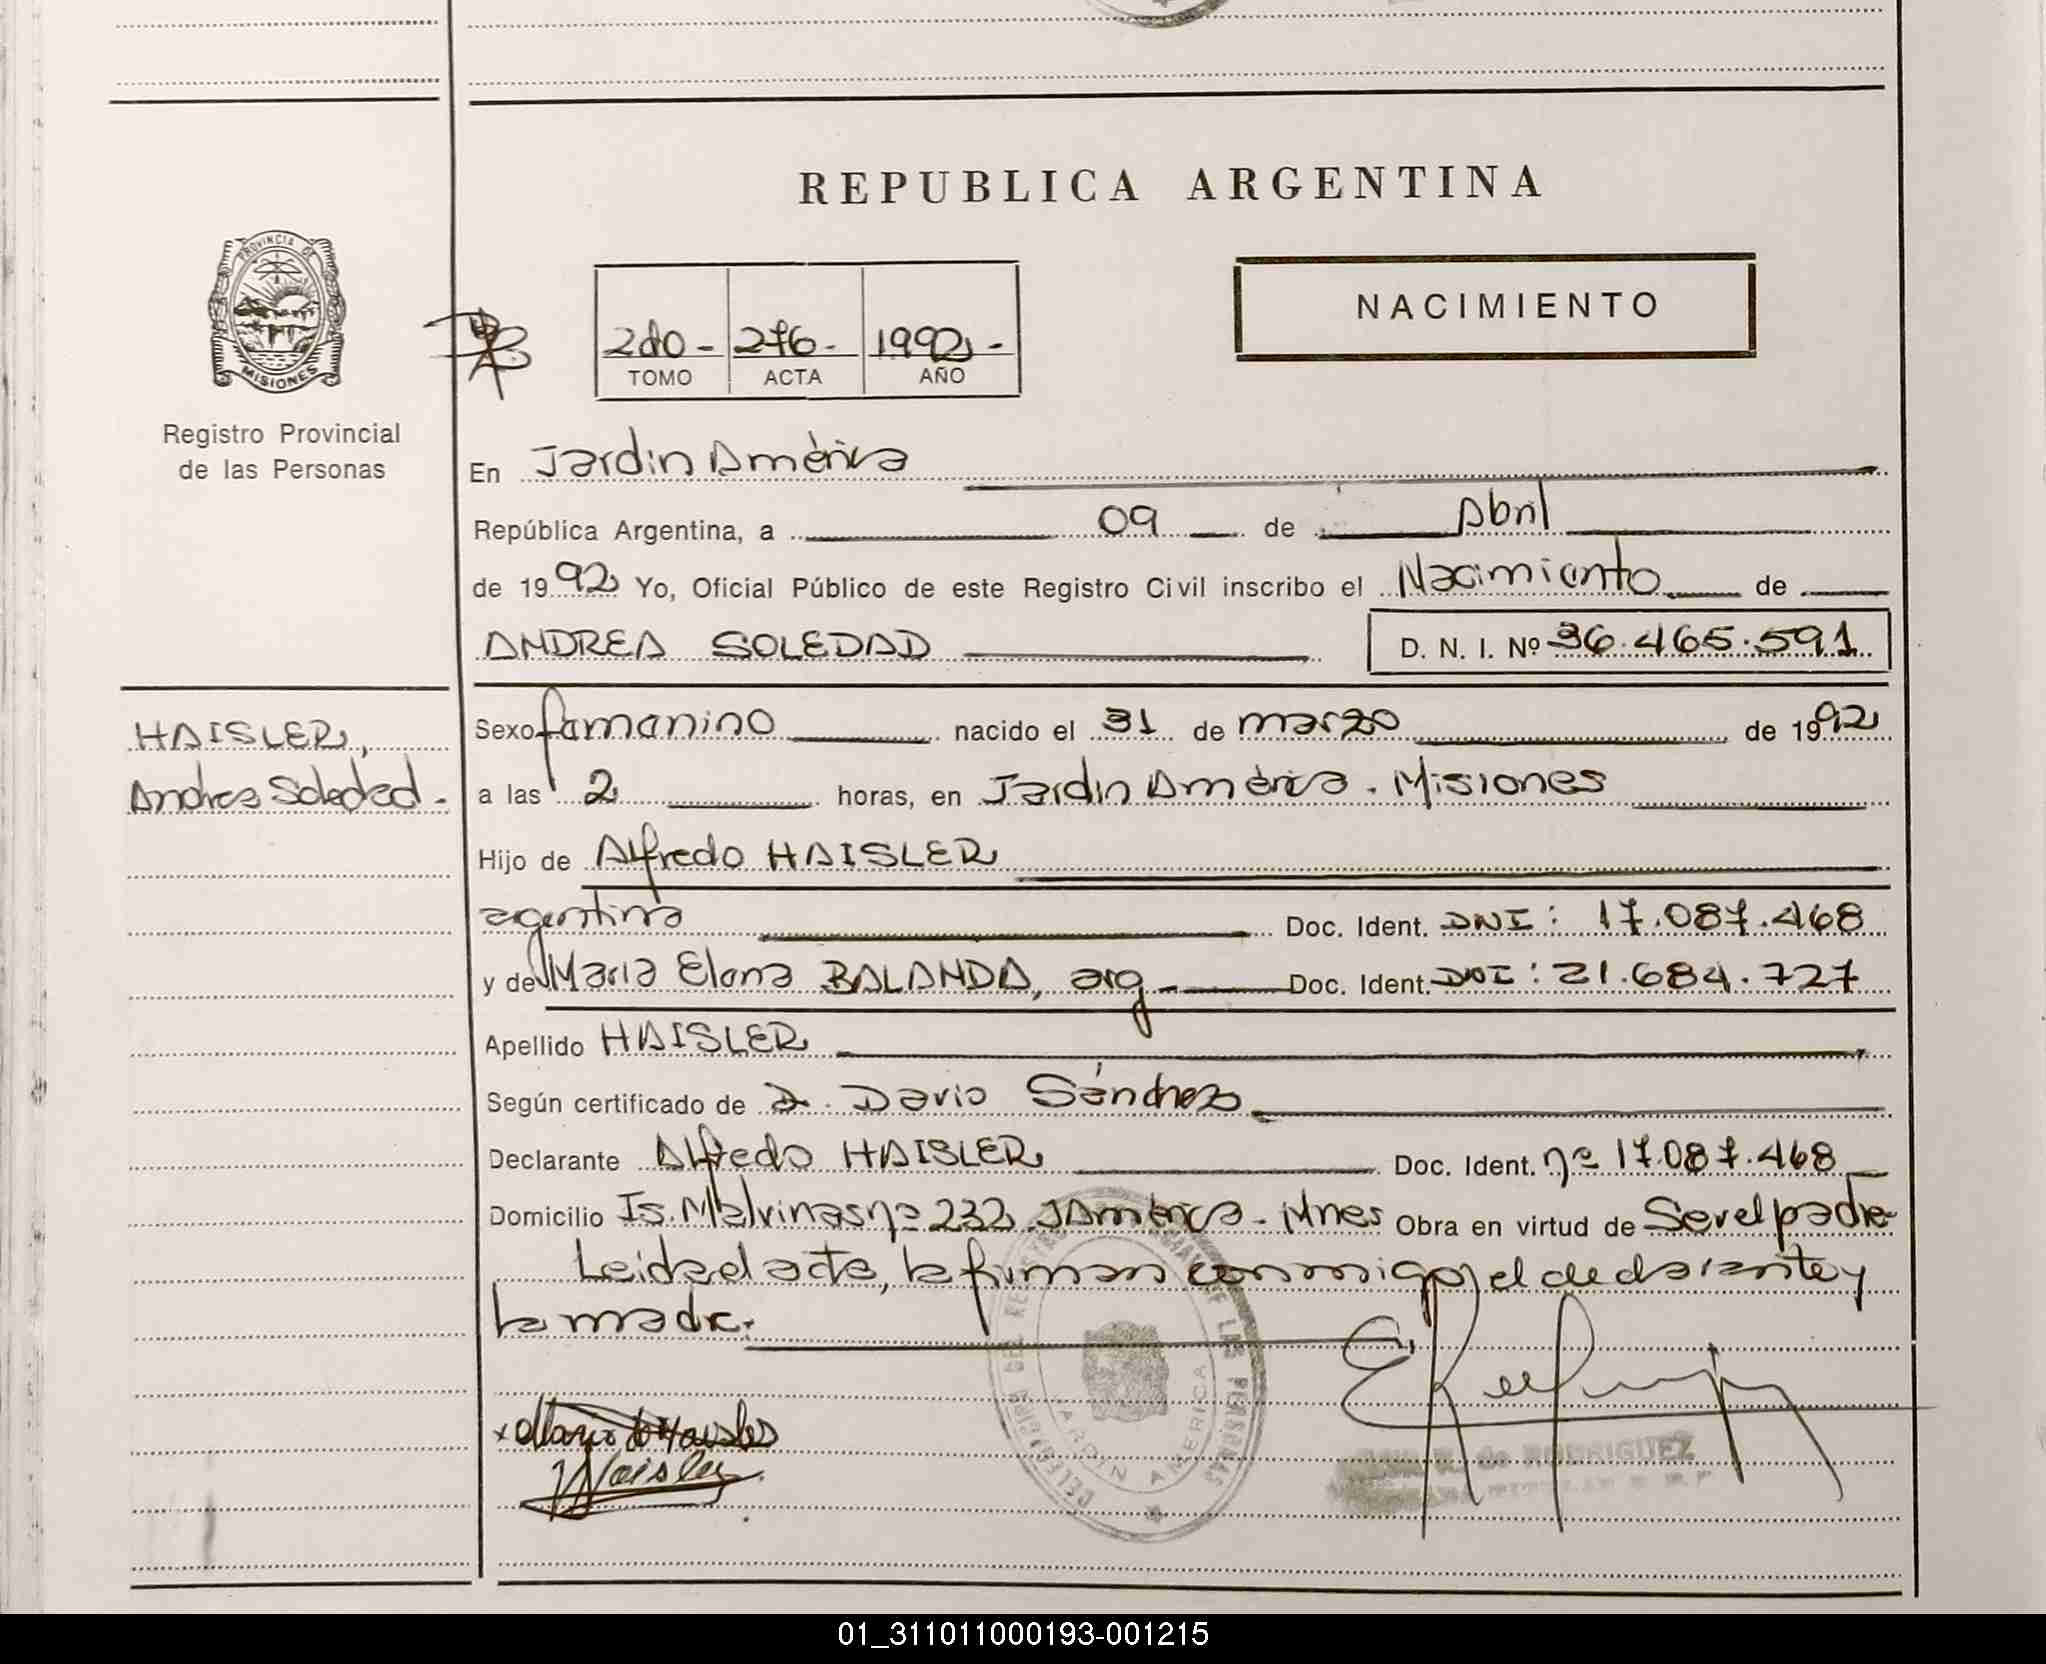 REPUBLICA ARGENTINA
PROVINCIA DE
MISIONES
Registro Provincial
de las Personas
2do - 276 - 1992 -
TOMO ACTA AÑO
NACIMIENTO
En Jardin América
República Argentina, a 09 de Abril
de 1992 Yo, Oficial Público de este Registro Civil inscribo el Nacimiento de
ANDREA SOLEDAD D. N. I. Nº 36.465.591
HAISLER,
Andrea Soledad.
Sexo femenino nacido el 31 de marzo de 1992
a las 2 horas, en Jardin América. Misiones
Hijo de Alfredo HAISLER
argentina Doc. Ident. DNI: 17.087.468
y de Maria Elena BALANDA, arg. Doc. Ident. DNI: 21.684.727
Apellido HAISLER
Según certificado de Dario Sánchez
Declarante Alfredo HAISLER Doc. Ident. nº 17.087.468
Domicilio Is. Malvinas nº 232 J América - Mnes Obra en virtud de Ser el padre
Leida el acta, la firman conmigo, el declarante y
la madre.
Haisler
de RODRIGUEZ
JARDIN AMERICA
DE LAS PERSONAS
01_311011000193-001215